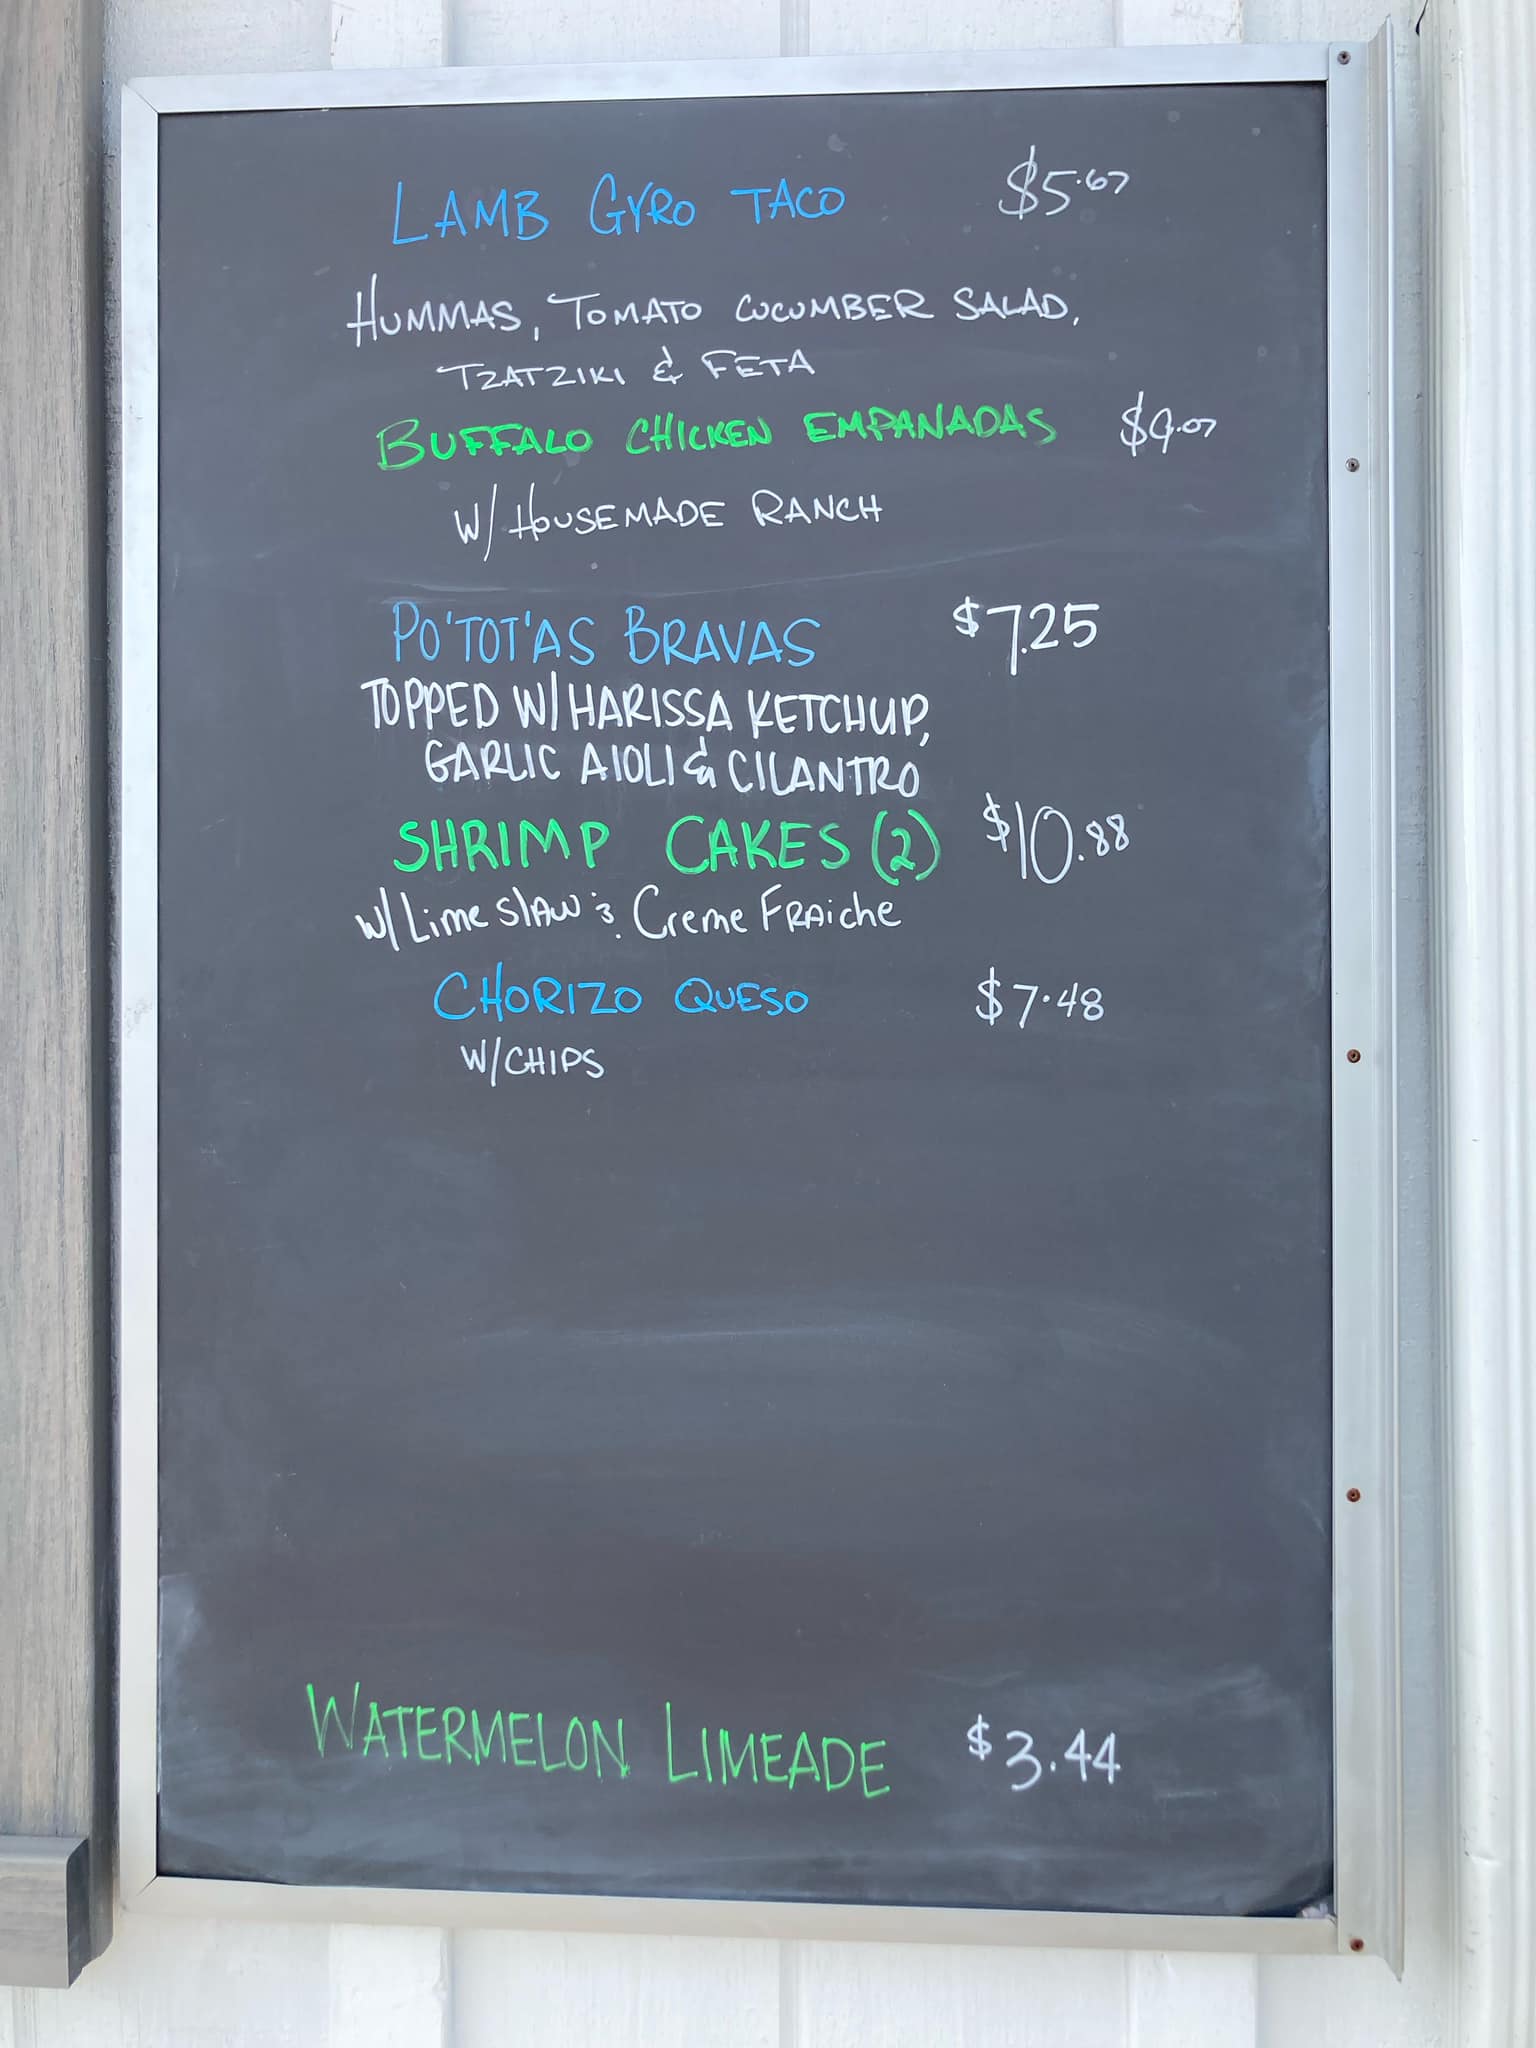 LAMB GYRO TACO $5.67
HUMMAS, TOMATO CUCUMBER SALAD,
TZATZIKI & FETA
BUFFALO CHICKEN EMPANADAS $9.07
W/ HOUSEMADE RANCH
PO'TOT'AS BRAVAS $7.25
TOPPED W/ HARISSA KETCHUP,
GARLIC AIOLI & CILANTRO
SHRIMP CAKES (2) $10.88
w/ Lime SLAW & Creme FRAiche
CHORIZO QUESO $7.48
W/CHIPS
WATERMELON LIMEADE $3.44